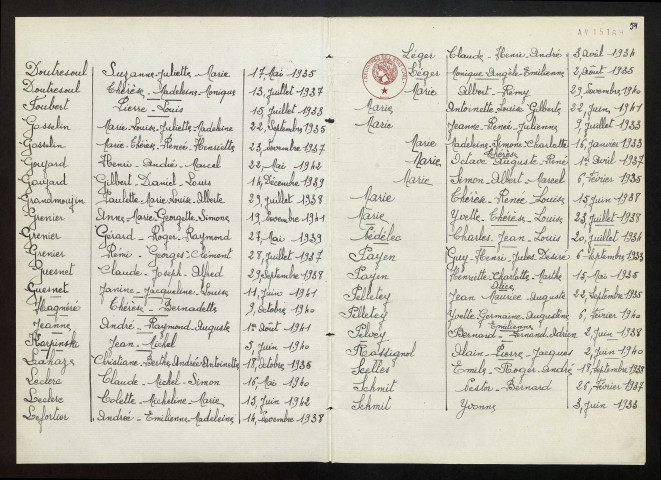 Doutresoul Suzanne-Juliette-Marie 17 Mai 1935
Doutresoul Thérèse-Madeleine-Monique 13 Juillet 1937
Joubert Pierre-Louis 15 Juillet 1933
Gosselin Marie-Louise-Juliette-Madeleine 22 Septembre 1935
Gosselin Marie-Thérèse-Renée-Henriette 23 Novembre 1937
Gouyard Henri-André-Marcel 22 Mai 1942
Gouyard Gilbert-Daniel-Louis 14 Décembre 1939
Grandmougin Paulette-Marie-Louise-Alberte 29 Juillet 1938
Grenier Anne-Marie-Georgette-Simone 19 Novembre 1941
Grenier Gérard-Roger-Raymond 27 Mai 1939
Grenier Rémi-Georges-Clément 28 Juillet 1937
Guesnet Claude-Joseph-Alfred 29 Septembre 1938
Guesnet Janine-Jacqueline-Louise 11 Juin 1941
Thérèse-Bernadette 9 Octobre 1940
Jeanne André-Raymond-Auguste 1er Août 1941
Karpinski Jean-Michel 5 Juin 1940
Lahaye Christiane-Berthe-Andrée-Antoinette 18 Octobre 1936
Leclerc Claude-Michel-Simon 16 Mai 1940
Leclerc Colette-Micheline-Marie 15 Juin 1942
Lefortier Andrée-Emilienne-Madeleine 14 Novembre 1938
54
Léger Claude-Henri-André 3 Avril 1934
Léger Monique-Angèle-Emilienne 2 Août 1935
Marie Albert-Rémy 29 Novembre 1940
Marie Antoinette-Louise-Gilberte 22 Juin 1941
Marie Jeanne-Renée-Julienne 9 Juillet 1933
Marie Madeleine-Simone-Charlotte Thérèse 16 Janvier 1933
Marie Octave-Auguste-René 1er Avril 1937
Marie Simon-Albert-Marcel 6 Février 1935
Marie Thérèse-Renée-Louise 15 Juin 1938
Marie Yvette-Thérèse-Louise 23 Juillet 1938
Nédélec Charles-Jean-Louis 20 Juillet 1934
Payen Guy-Henri-Jules-Désiré 6 Septembre 1935
Payen Henriette-Charlotte-Marthe Alice 15 Mai 1936
Pelletey Jean-Maurice-Auguste 22 Septembre 1935
Pelletey Yvette-Germaine-Augustine Emilienne 6 Février 1940
Pelvey Bernard-Fernand-Adrien 2 Juin 1938
Rossignol Alain-Pierre-Jacques 2 Juin 1940
Scelles Emile-Roger-André 18 Septembre 1938
Schmit Nestor-Bernard 26 Février 1937
Schmit Yvonne 3 Juin 1933